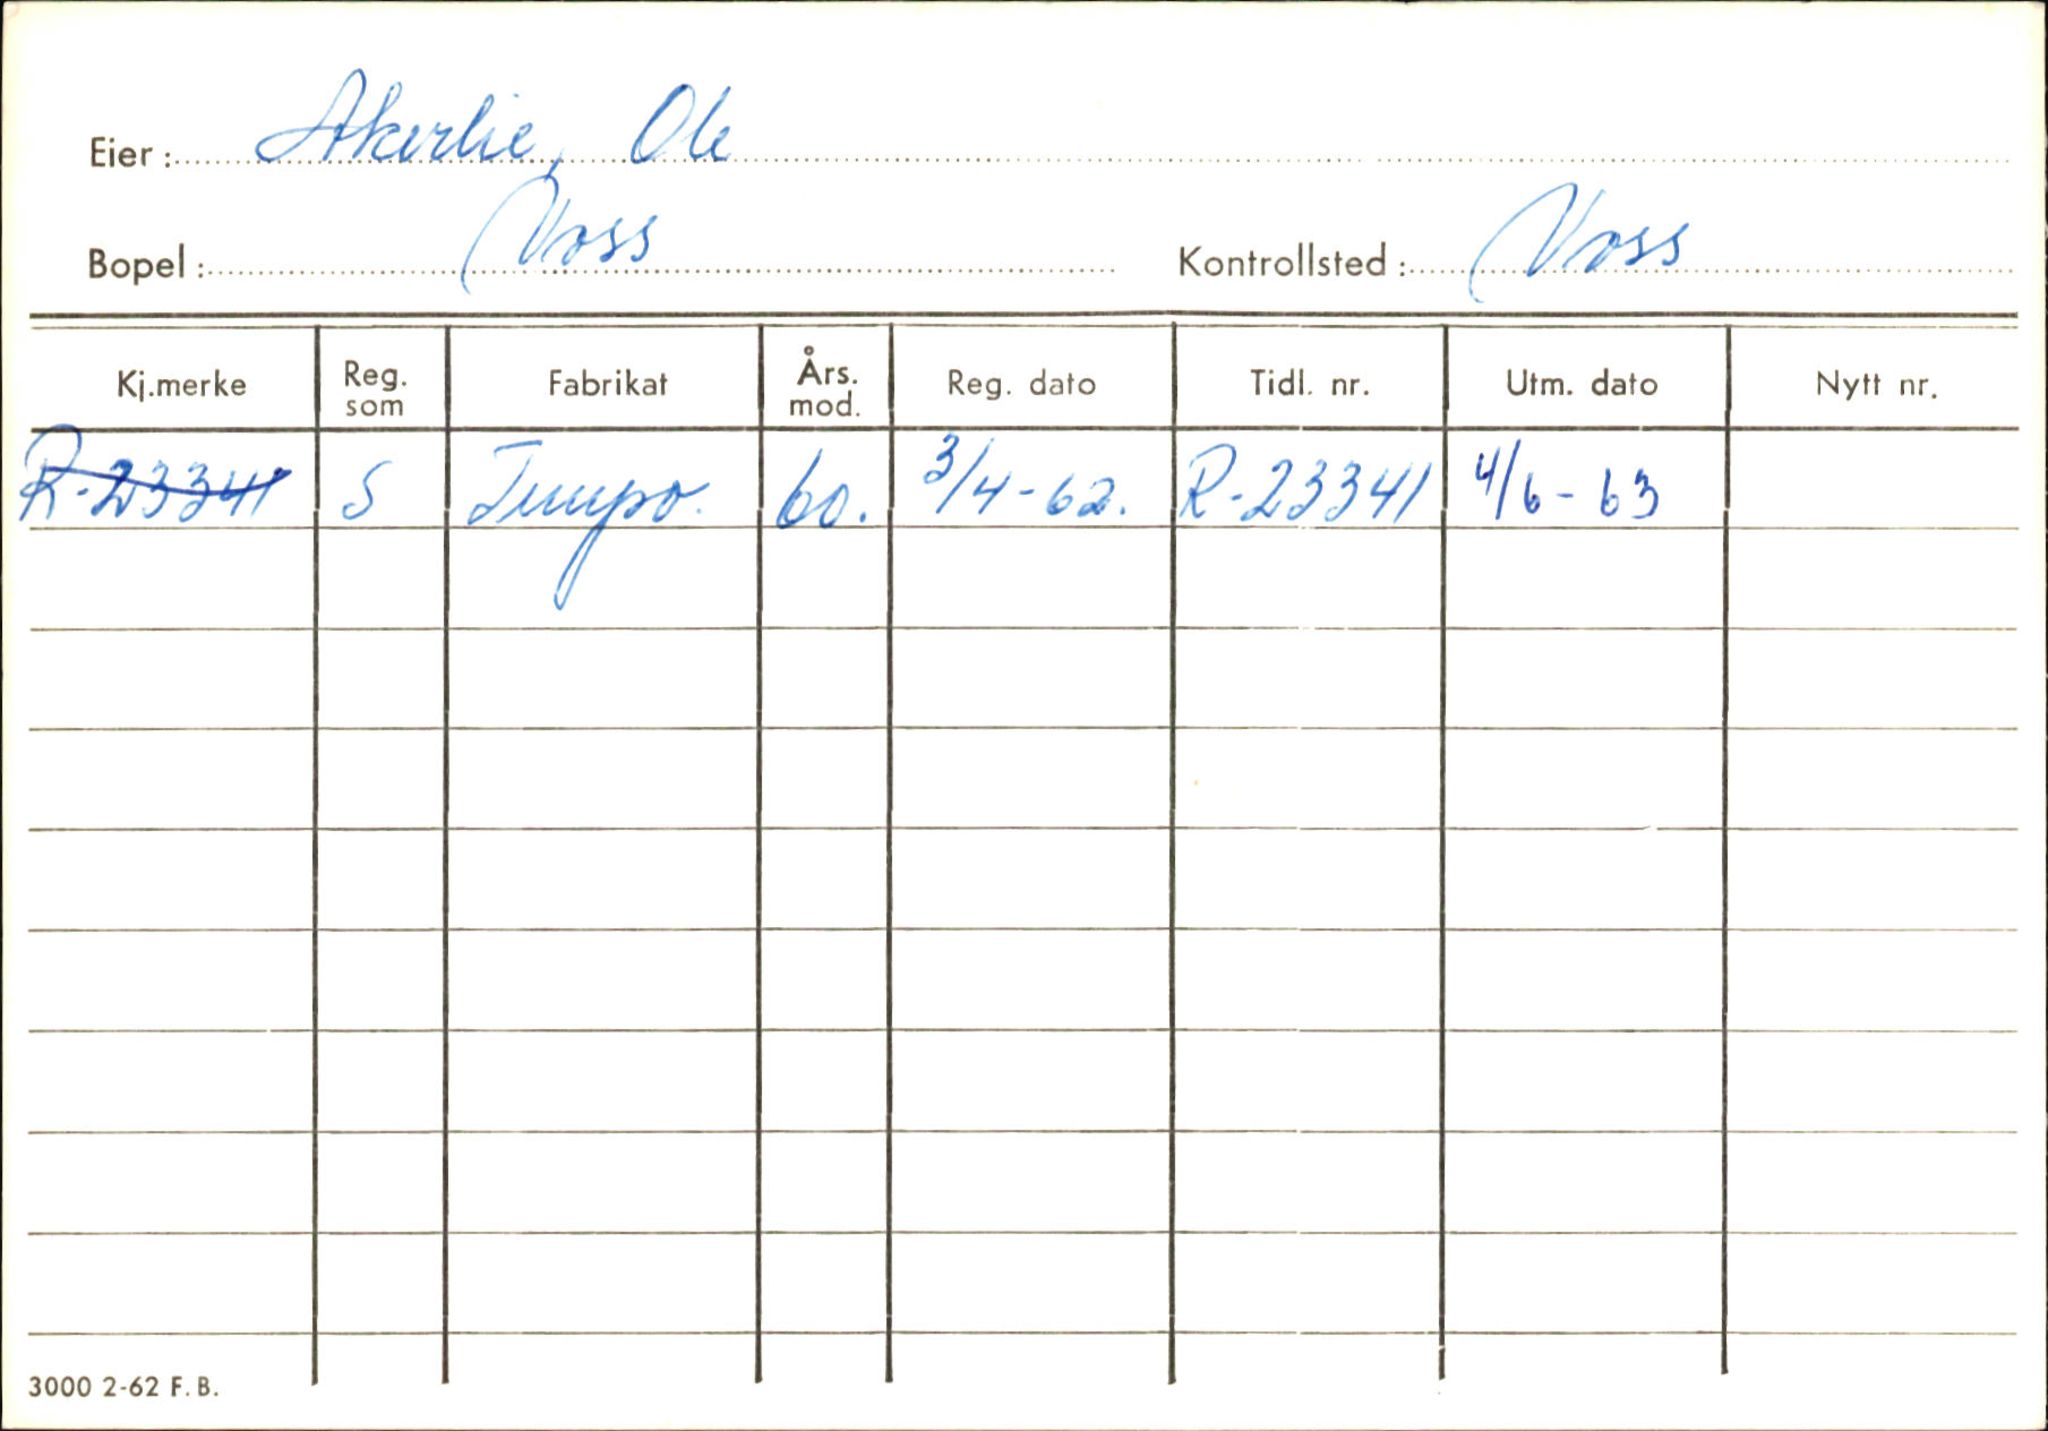 Eier: Akerlie, Ole
Bopel: Voss Kontrollsted: Voss
Kj.merke Reg. som Fabrikat Års. mod. Reg. dato Tidl. nr. Utm. dato Nytt nr.
R-23341 S Tempo. 60. 3/4-62. R-23341 4/6-63
3000 2-62 F.B.